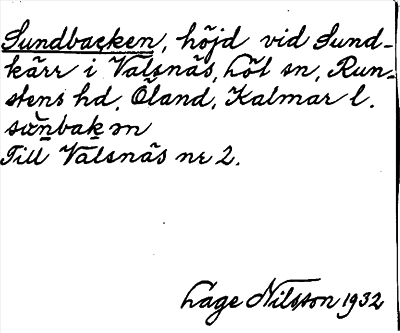 Sundbacken, höjd vid Sund-
kärr i Valsnäs, Löt sn, Run-
stens hd, Öland, Kalmar l.
sɯn̲bak̲ m
Till Valsnäs nr 2.
Låge Nilsson 1932